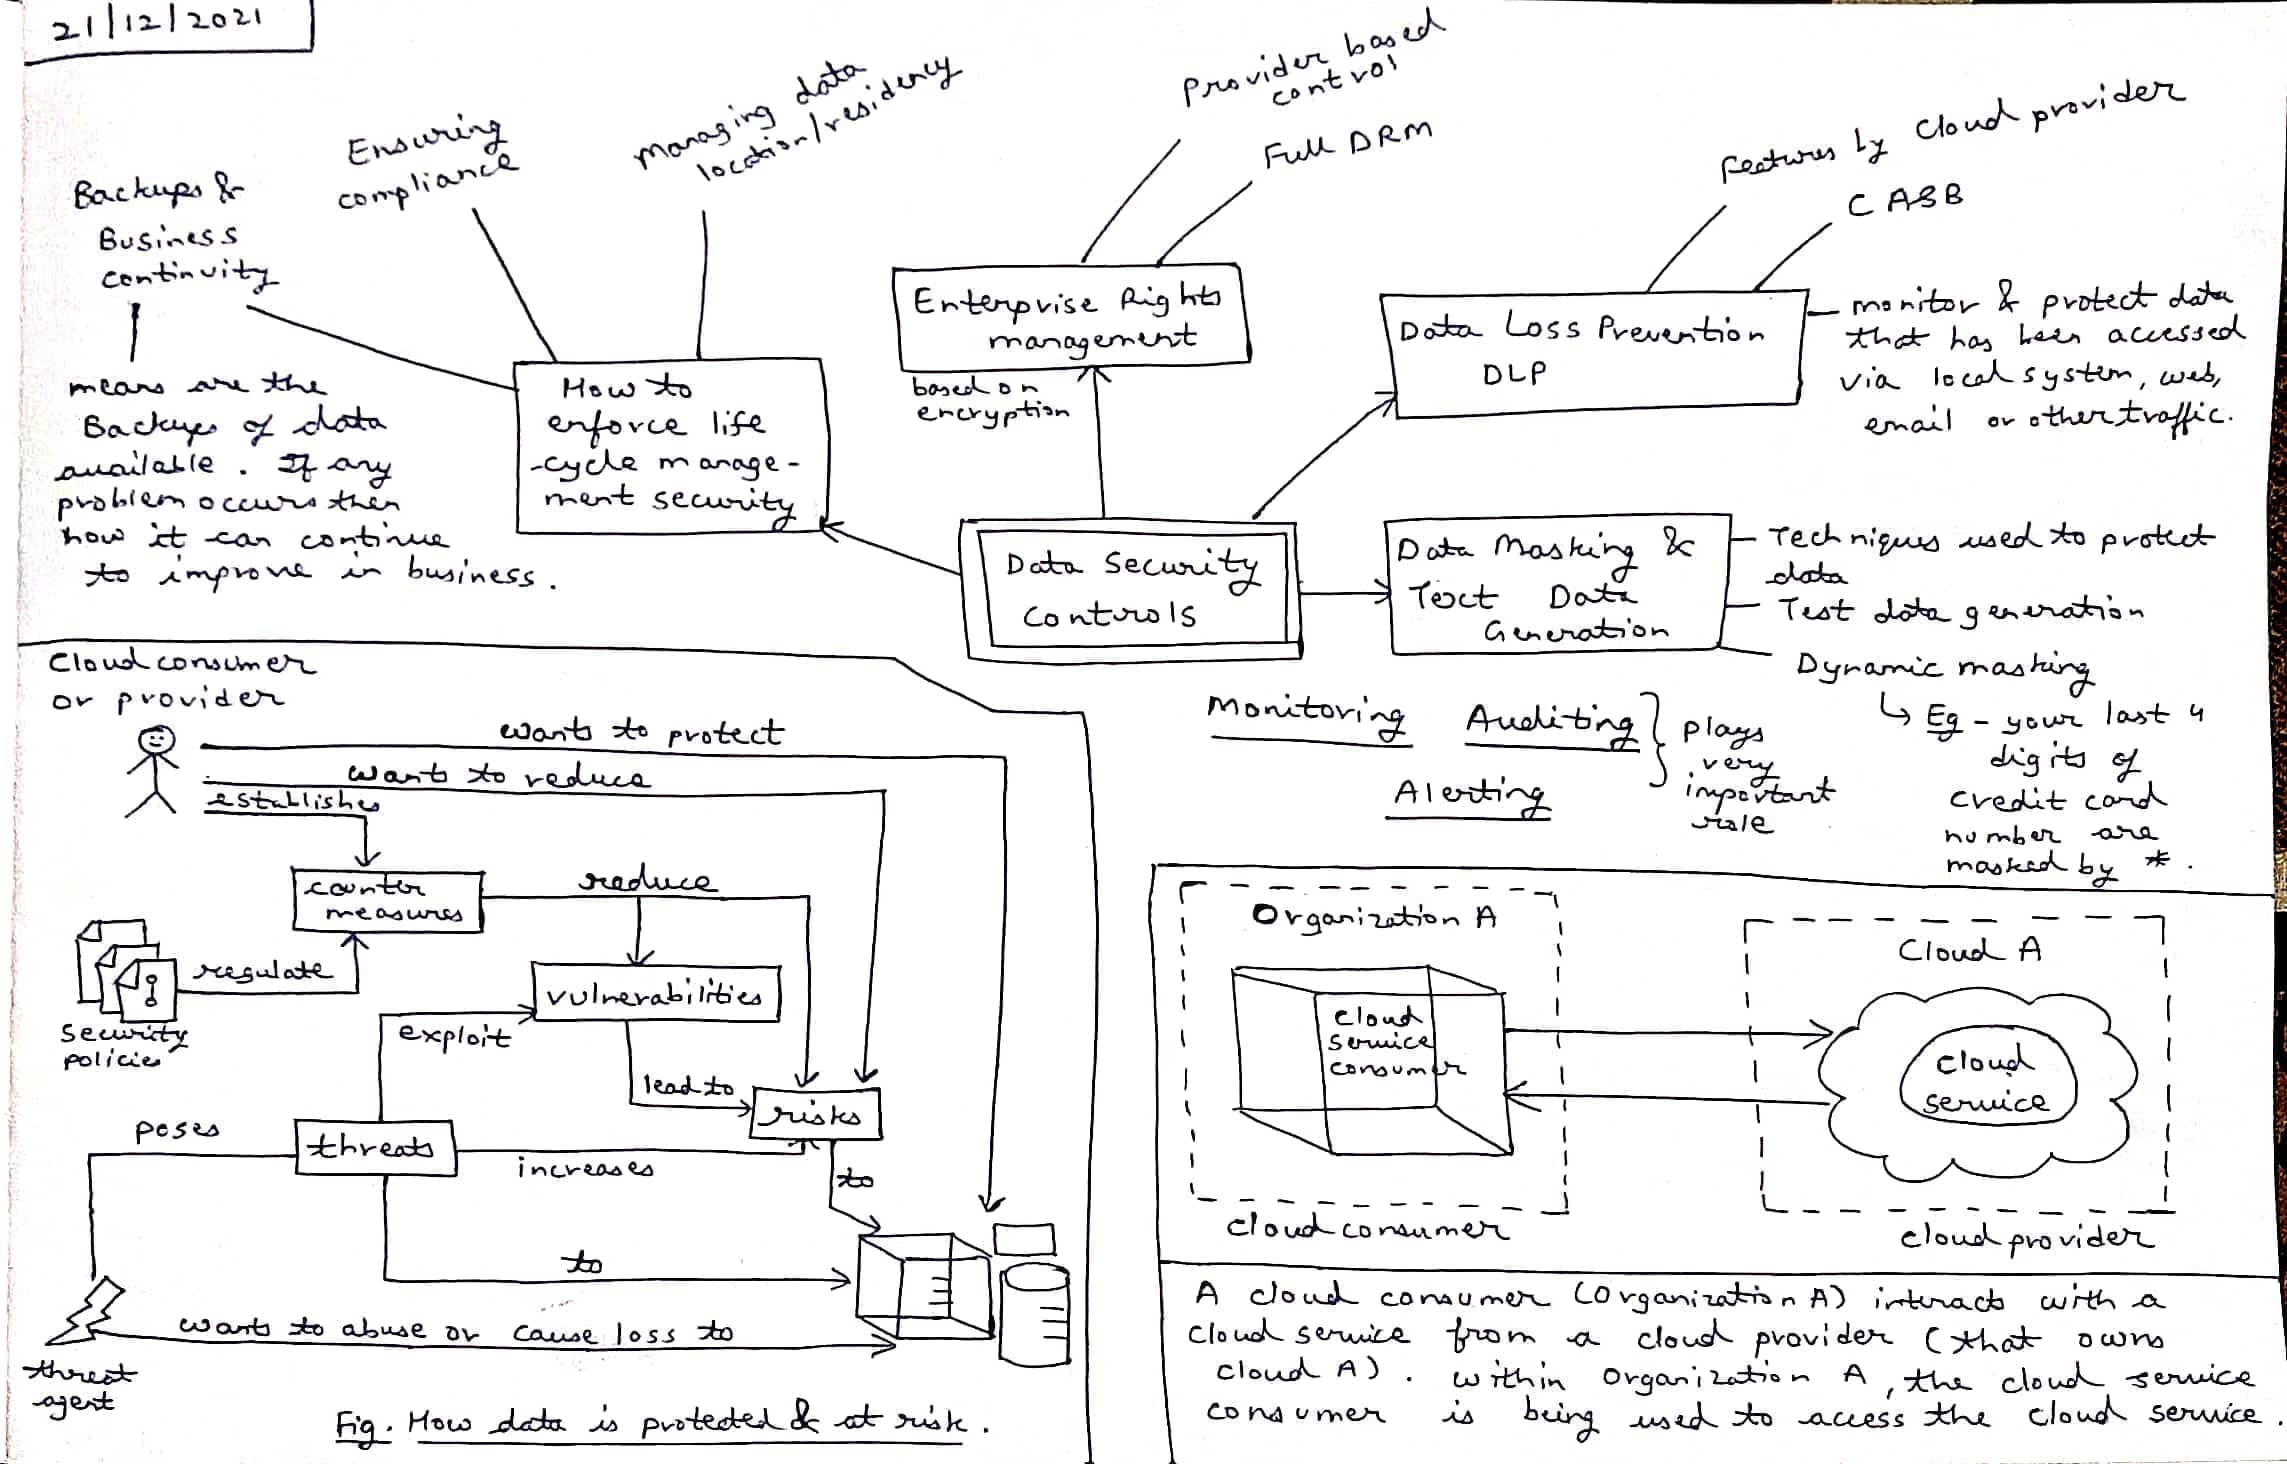 21/12/2021
Backups &
Business
continuity
means are the
Backups of data
available. If any
problem occurs then
how it can continue
to improve in business.
Ensuring
compliance
Managing data
location/residency
How to
enforce life
-cycle manage-
ment security
Provider based
control
Full DRM
Enterprise Rights
management
based on
encryption
Features by Cloud provider
CASB
Data Loss Prevention
DLP
monitor & protect data
that has been accessed
via local system, web,
email or other traffic.
Data Security
Controls
Data Masking &
Text Data
Generation
Techniques used to protect
data
Test data generation
Dynamic masking
↳ Eg - your last 4
digits of
credit card
number are
masked by *.
Monitoring Auditing
Alerting
plays
very
important
role
Cloud consumer
or provider
wants to protect
wants to reduce
establishes
counter
measures
reduce
regulate
security
policies
vulnerabilities
exploit
lead to
risks
poses
threats
increases
to
to
wants to abuse or cause loss to
threat
agent
Fig. How data is protected & at risk.
Organization A
cloud
service
consumer
cloud consumer
Cloud A
cloud
service
cloud provider
A cloud consumer (Organization A) interacts with a
cloud service from a cloud provider (that owns
cloud A). within Organization A, the cloud service
consumer is being used to access the cloud service.